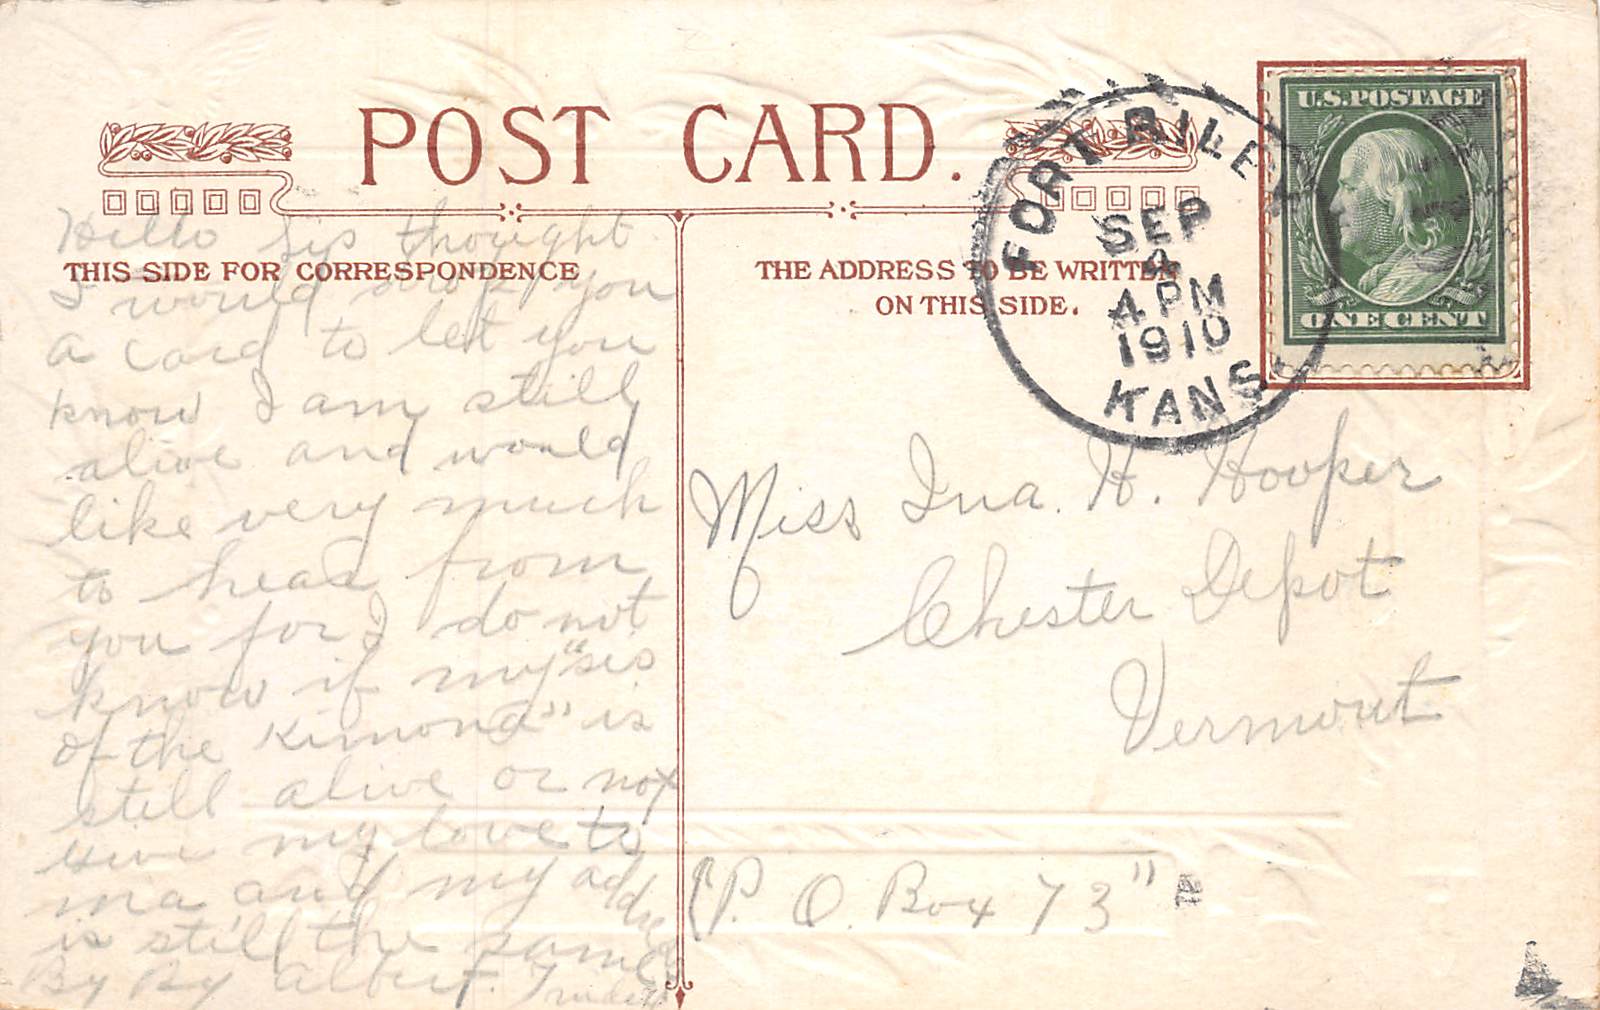 POST CARD.
U.S.POSTAGE
ONE CENT
FORT RILEY
SEP
4
4 PM
1910
KANS.
THIS SIDE FOR CORRESPONDENCE
THE ADDRESS TO BE WRITTEN
ON THIS SIDE.
Hello Sis thought
I would drop you
a card to let you
know I am still
alive and would
like very much
to hear from
you for I do not
know if my "sis
of the Kimona" is
still alive or not
Give my love to
ma and my address
is still the same
By By Albert.
Miss Ina. H. Hooper
Chester Depot
Vermont
(P. O. Box 73"